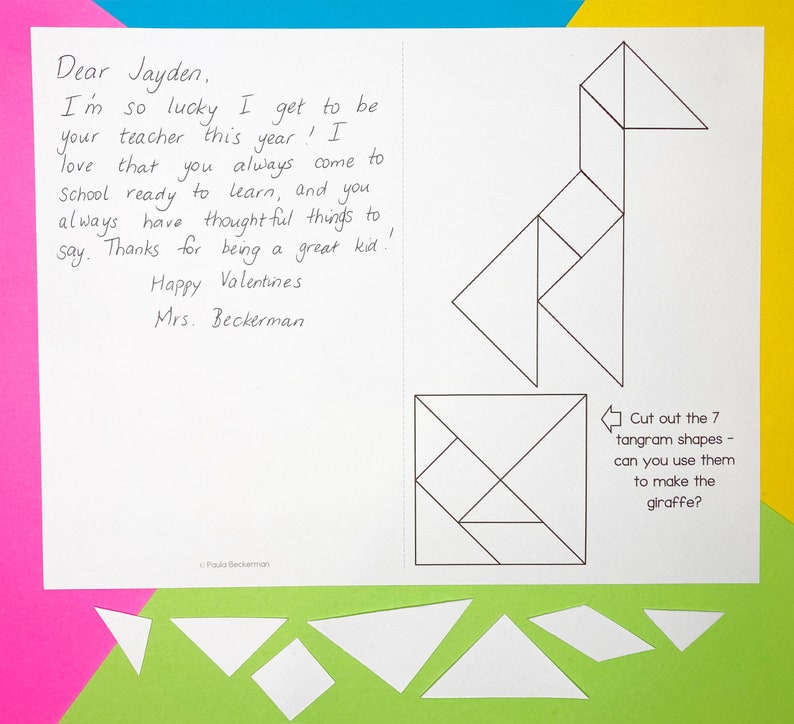 Dear Jayden,
I'm so lucky I get to be
your teacher this year! I
love that you always come to
school ready to learn, and you
always have thoughtful things to
say. Thanks for being a great kid!
Happy Valentines
Mrs. Beckerman
© Paula Beckerman
Cut out the 7
tangram shapes -
can you use them
to make the
giraffe?